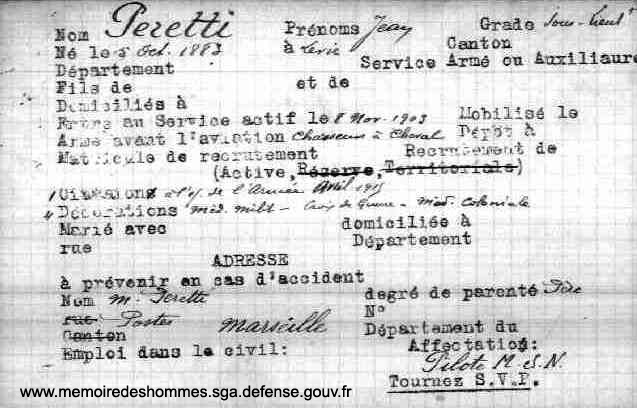 Nom Peretti Prénoms Jean Grade Sous-Lieut
Né le 5 Oct. 1883 à Levie Canton
Département Service Armé ou Auxiliaure
Fils de et de
Domiciliés à
Entré au Service actif le 8 Nov. 1903 Mobilisé le
Arme avant l'aviation Chasseurs à Cheval Dépôt à
Matricule de recrutement Recrutement de
(Active, Réserve, Territoriale)
1 Citations à l'o/. de l'Armée Avril 1915
4 Décorations Méd. milit - Croix de Guerre - Méd. Coloniale
Marié avec domiciliée à
rue Département
ADRESSE
à prévenir en cas d'accident
Nom M. Peretti degré de parenté Père
rue Postes Marseille N°
Canton Département du
Emploi dans le civil: Affectation:
Pilote M.S.N.
Tournez S.V.P.
www.memoiredeshommes.sga.defense.gouv.fr